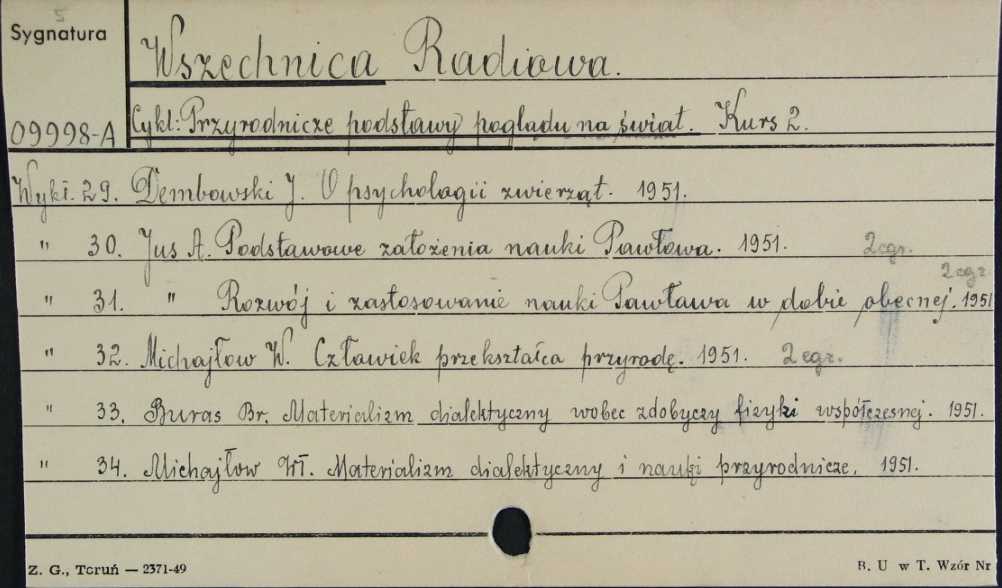 5
Sygnatura
Wszechnica Radiowa.
Cykl: Przyrodnicze podstawy poglądu na świat. Kurs 2.
09998-A
Wykł. 29. Dembowski J. O psychologii zwierząt. 1951.
" 30. Jus A. Podstawowe założenia nauki Pawłowa. 1951. 2 egz.
2 egz.
" 31. " Rozwój i zastosowanie nauki Pawłowa w dobie obecnej. 1951
" 32. Michajłow W. Człowiek przekształca przyrodę. 1951. 2 egz.
" 33. Buras Br. Materializm dialektyczny wobec zdobyczy fizyki współczesnej. 1951.
" 34. Michajłow Wł. Materializm dialektyczny i nauki przyrodnicze. 1951.
Z. G., Toruń — 2371-49
B. U w T. Wzór Nr